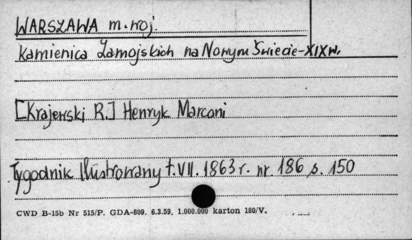 WARSZAWA m. woj.
Kamienica Zamojskich na Nowym Świecie-XIXw.
[Krajewski R.] Henryk Marconi
Tygodnik Ilustrowany t. VII. 1863 r. nr. 186 s. 150
CWD B-15b Nr 515/P. GDA-809. 6.3.59. 1.000.000 karton 180/V.